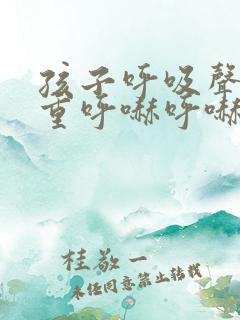 孩子呼吸聲
重呼嚇呼嚇
桂敬一
未经同意禁止转载